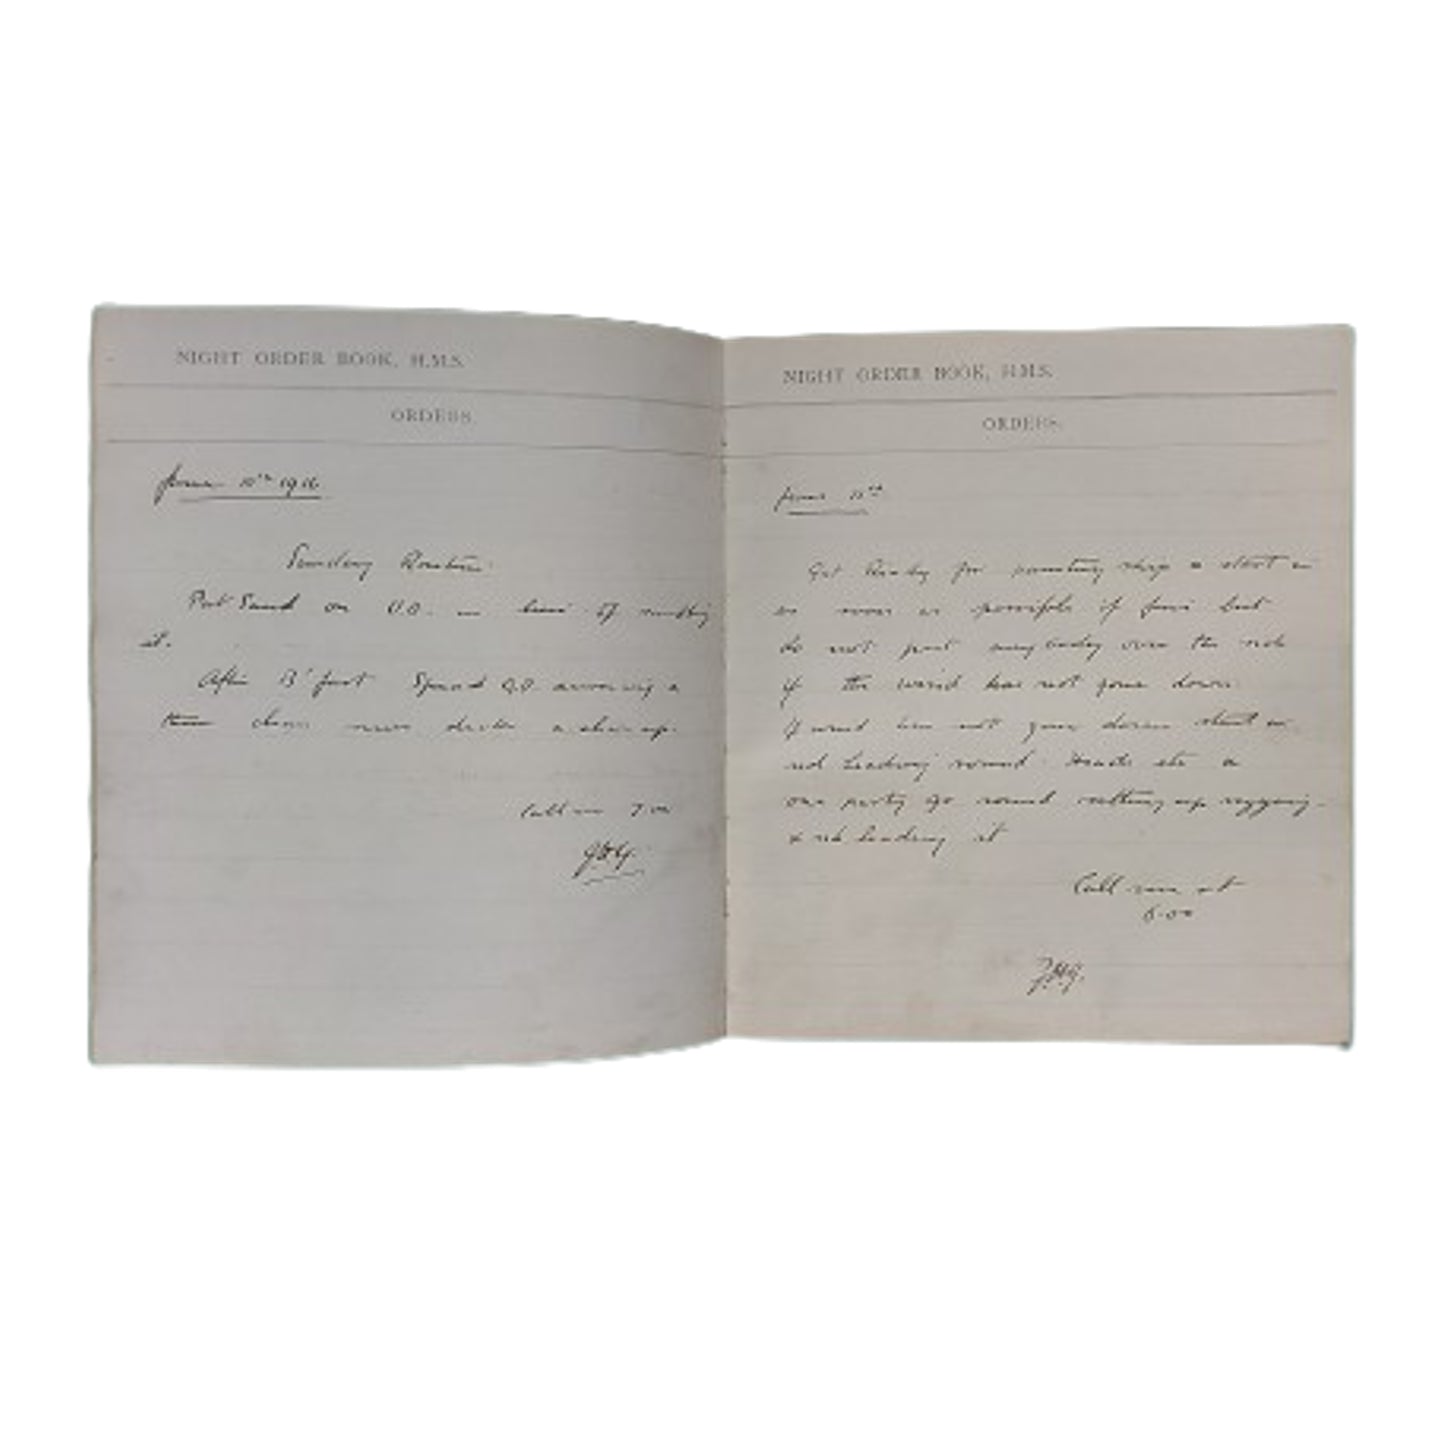 NIGHT ORDER BOOK, H.M.S.
ORDERS.
June 10th 1916
Sunday Routine.
Put Sand on U.D. in lieu of scrubbing
it.
After B'fast Spread Q.D. awning &
clean mess decks & clear up.
Call me 7.00
NIGHT ORDER BOOK, H.M.S.
ORDERS.
June 11th
Get Ready for painting ship & start in
as soon as possible if fine but
do not put anybody over the side
if the wind has not gone down.
If wind has not gone down start in
red leading round Heads etc &
one party go round rattling up rigging
& red leading it
Call me at
6.00